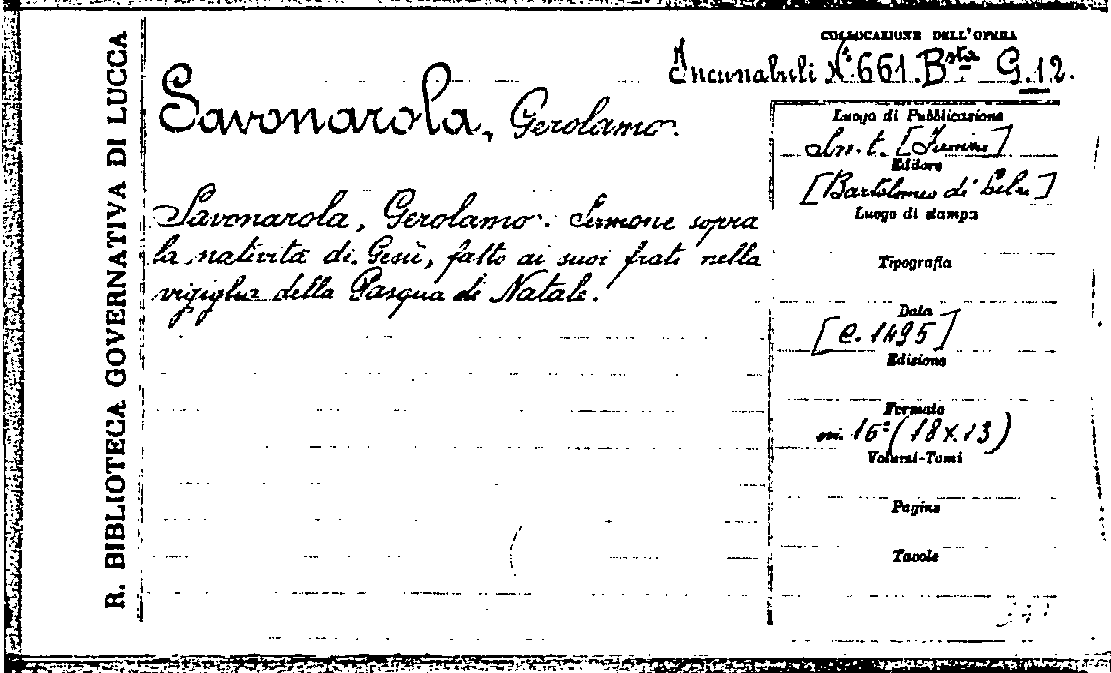 R. BIBLIOTECA GOVERNATIVA DI LUCCA
COLLOCAZIONE DELL'OPERA
Incunabuli N.° 661. Bsta G.12.
Savonarola, Gerolamo.
Savonarola, Gerolamo. Sermone sopra
la natività di Gesù, fatto ai suoi frati nella
vigiglia della Pasqua di Natale.
Luogo di Pubblicazione
Editore
[Bartolomeo di Libri]
Luogo di stampa
Tipografia
Data
[c. 1495]
Edizione
Formato
in 16° (18x13)
Volumi-Tomi
Pagine
Tavole